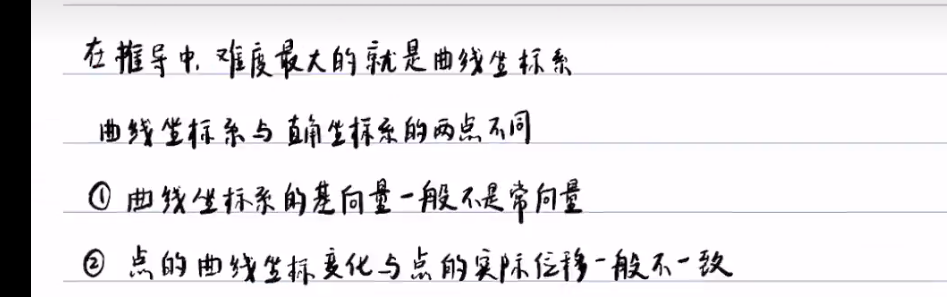 在推导中,难度最大的就是曲线坐标系
曲线坐标系与直角坐标系的两点不同
① 曲线坐标系的基向量一般不是常向量
② 点的曲线坐标变化与点的实际位移一般不一致